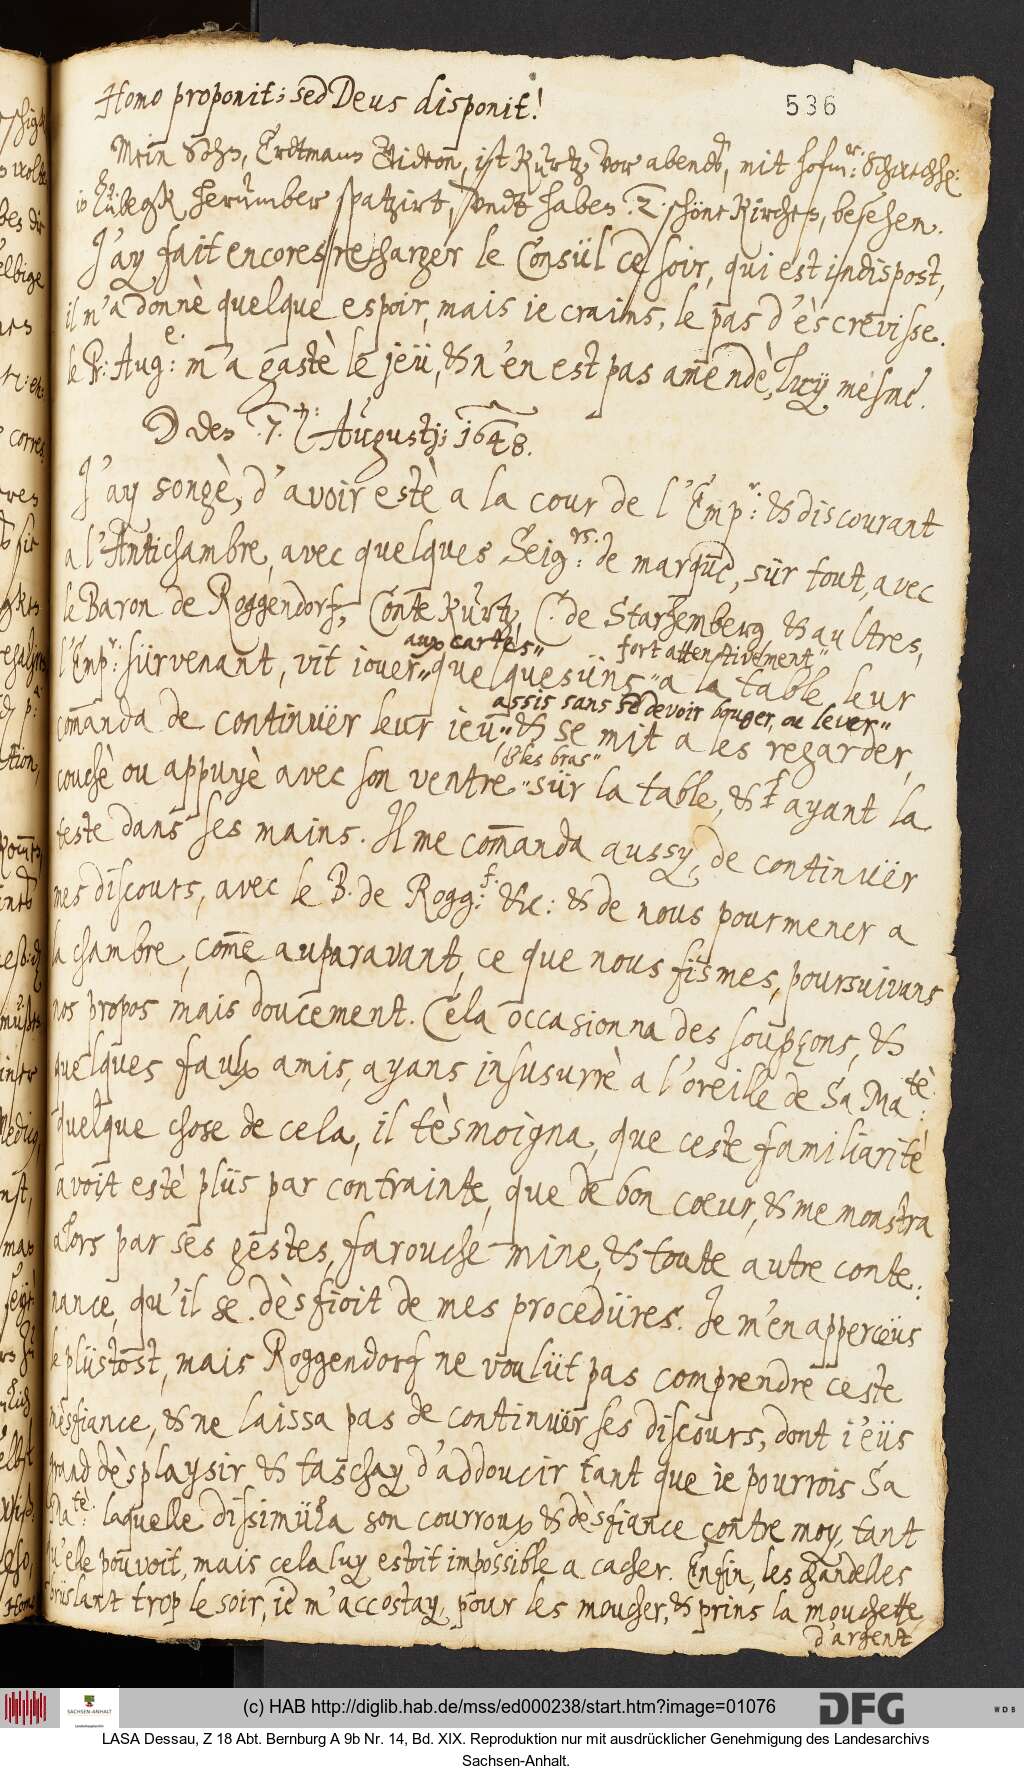 Homo proponit; sed Deus disponit!
536
Mein Sohn, Erdtmann Gideon, ist kurtz vor abendt, mit hofm:
in Lübegk herümber spatzirt, undt haben .2. schöne Kirchen, besehen.
J'ay fait encores recharger le Consül ce soir, qui est indispost,
il m'a donnè quelque espoir, mais ie crains, le pas d'èscrevisse.
le Pr: Aug:e m'a gastè le jeü, & n'en est pas amendè, luy mesme.
☽ den .7.den: Augustj; 1648.
J'ay songè, d'avoir estè a la cour de l'Empr: & discourant
a l'Antichambre, avec quelques Seigrs: de marque, sür tout, avec
le Baron de Roggendorf, Conte Kurtz, C. de Starhemberg, & aultres,
aux cartes" fort attentivement"
l'Empr: sürvenant, vit iouer" quelquesüns" a la table, leur
assis sans se devoir bouger, ou lever"
comanda de continuër leur ieü" & se mit a les regarder,
(& les bras"
couchè ou appuyè avec son ventre" sür la table, & ayant la
teste dans ses mains. Il me comanda aussy, de continuër
mes discours, avec le B. de Roggf: &c: & de nous pourmener a
la chambre, come auparavant, ce que nous fismes, poursuivans
nos propos mais doucement. Cela occasionna des soupçons, &
quelques faulx amis, ayans insusurrè a l'oreille de Sa Matè:
quelque chose de cela, il tèsmoigna, que ceste familiaritè
avoit estè plüs par contrainte, que de bon coeur, & me monstra
alors par ses gestes, farouche mine, & toute autre conte:
nance, qu'il se dèsfioit de mes procedüres. Je m'en apperceüs
le plüstost, mais Roggendorf ne voulüt pas comprendre ceste
mèsfiance, & ne laissa pas de continuër ses discours, dont i'eüs
grand dèsplaysir & taschay d'addoucir tant que ie pourrois Sa
Matè: laquelle dissimüla son courroux & dèsfiance contre moy, tant
qu'elle pouvoit, mais cela luy estoit impossible a cacher. Enfin, les chandelles
bruslant trop le soir, ie m'accostay, pour les moucher, & prins la mouchette
d'argent
(c) HAB http://diglib.hab.de/mss/ed000238/start.htm?image=01076
SACHSEN-ANHALT
DFG
WDB
LASA Dessau, Z 18 Abt. Bernburg A 9b Nr. 14, Bd. XIX. Reproduktion nur mit ausdrücklicher Genehmigung des Landesarchivs
Sachsen-Anhalt.